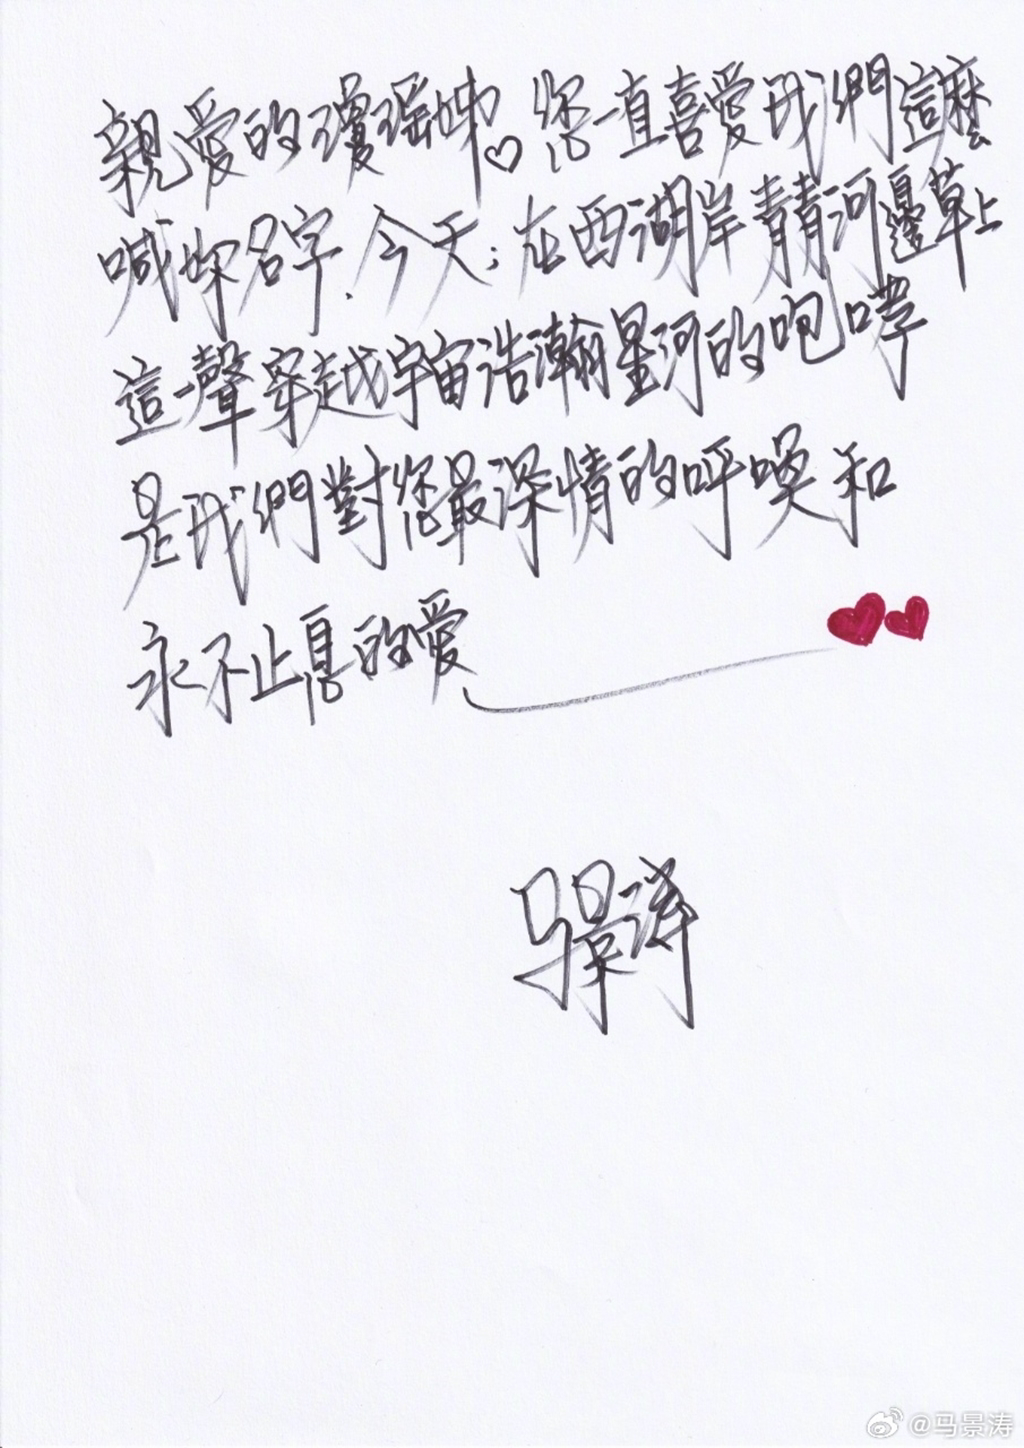 親愛的瓊瑤姊♡您一直喜愛我們這麼
喊妳名字.今天;在西湖岸青青河邊草上
這一聲穿越宇宙浩瀚星河的咆哮
是我們對您最深情的呼喚和
永不止息的愛
@马景涛